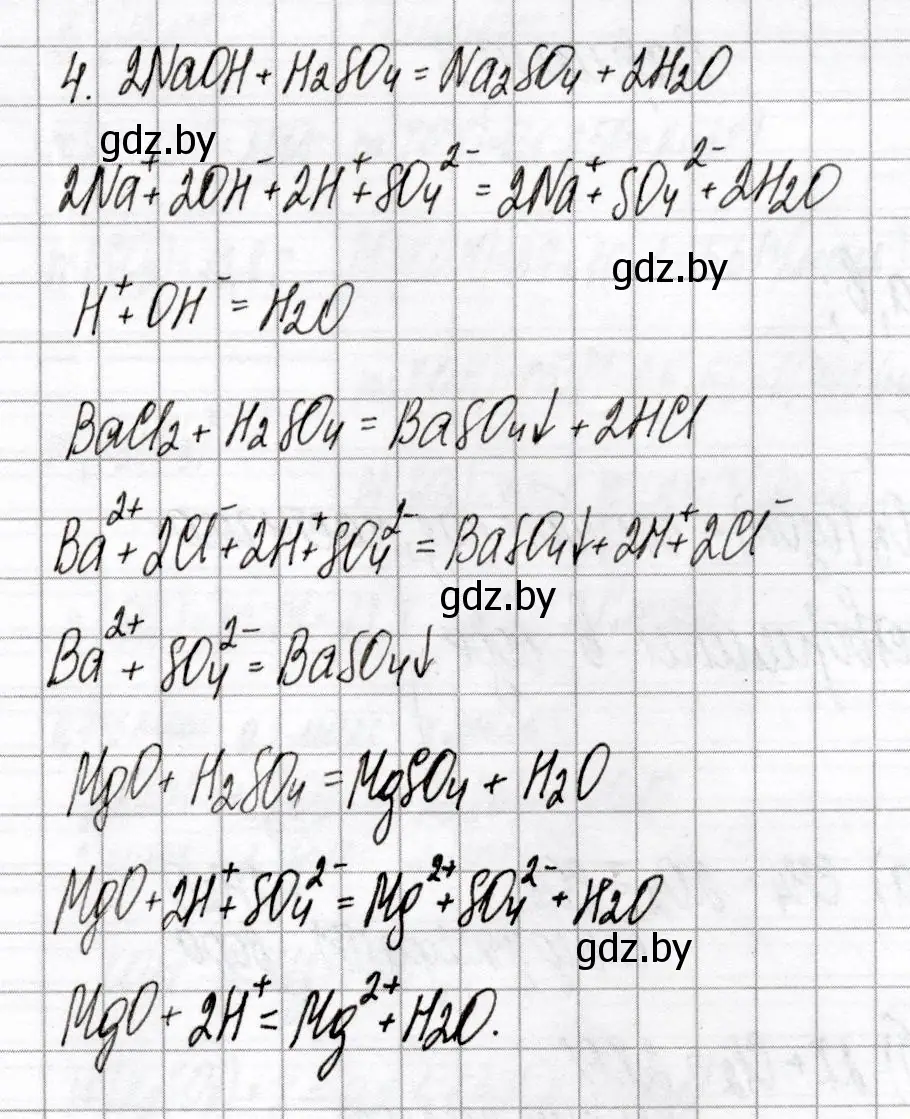 4. 2NaOH + H₂SO₄ = Na₂SO₄ + 2H₂O
gdz.by
2Na⁺ + 2OH⁻ + 2H⁺ + SO₄²⁻ = 2Na⁺ + SO₄²⁻ + 2H₂O
gdz.by
H⁺ + OH⁻ = H₂O
BaCl₂ + H₂SO₄ = BaSO₄↓ + 2HCl
Ba²⁺ + 2Cl⁻ + 2H⁺ + SO₄²⁻ = BaSO₄↓ + 2H⁺ + 2Cl⁻
gdz.by
Ba²⁺ + SO₄²⁻ = BaSO₄↓
MgO + H₂SO₄ = MgSO₄ + H₂O
MgO + 2H⁺ + SO₄²⁻ = Mg²⁺ + SO₄²⁻ + H₂O
gdz.by
MgO + 2H⁺ = Mg²⁺ + H₂O.